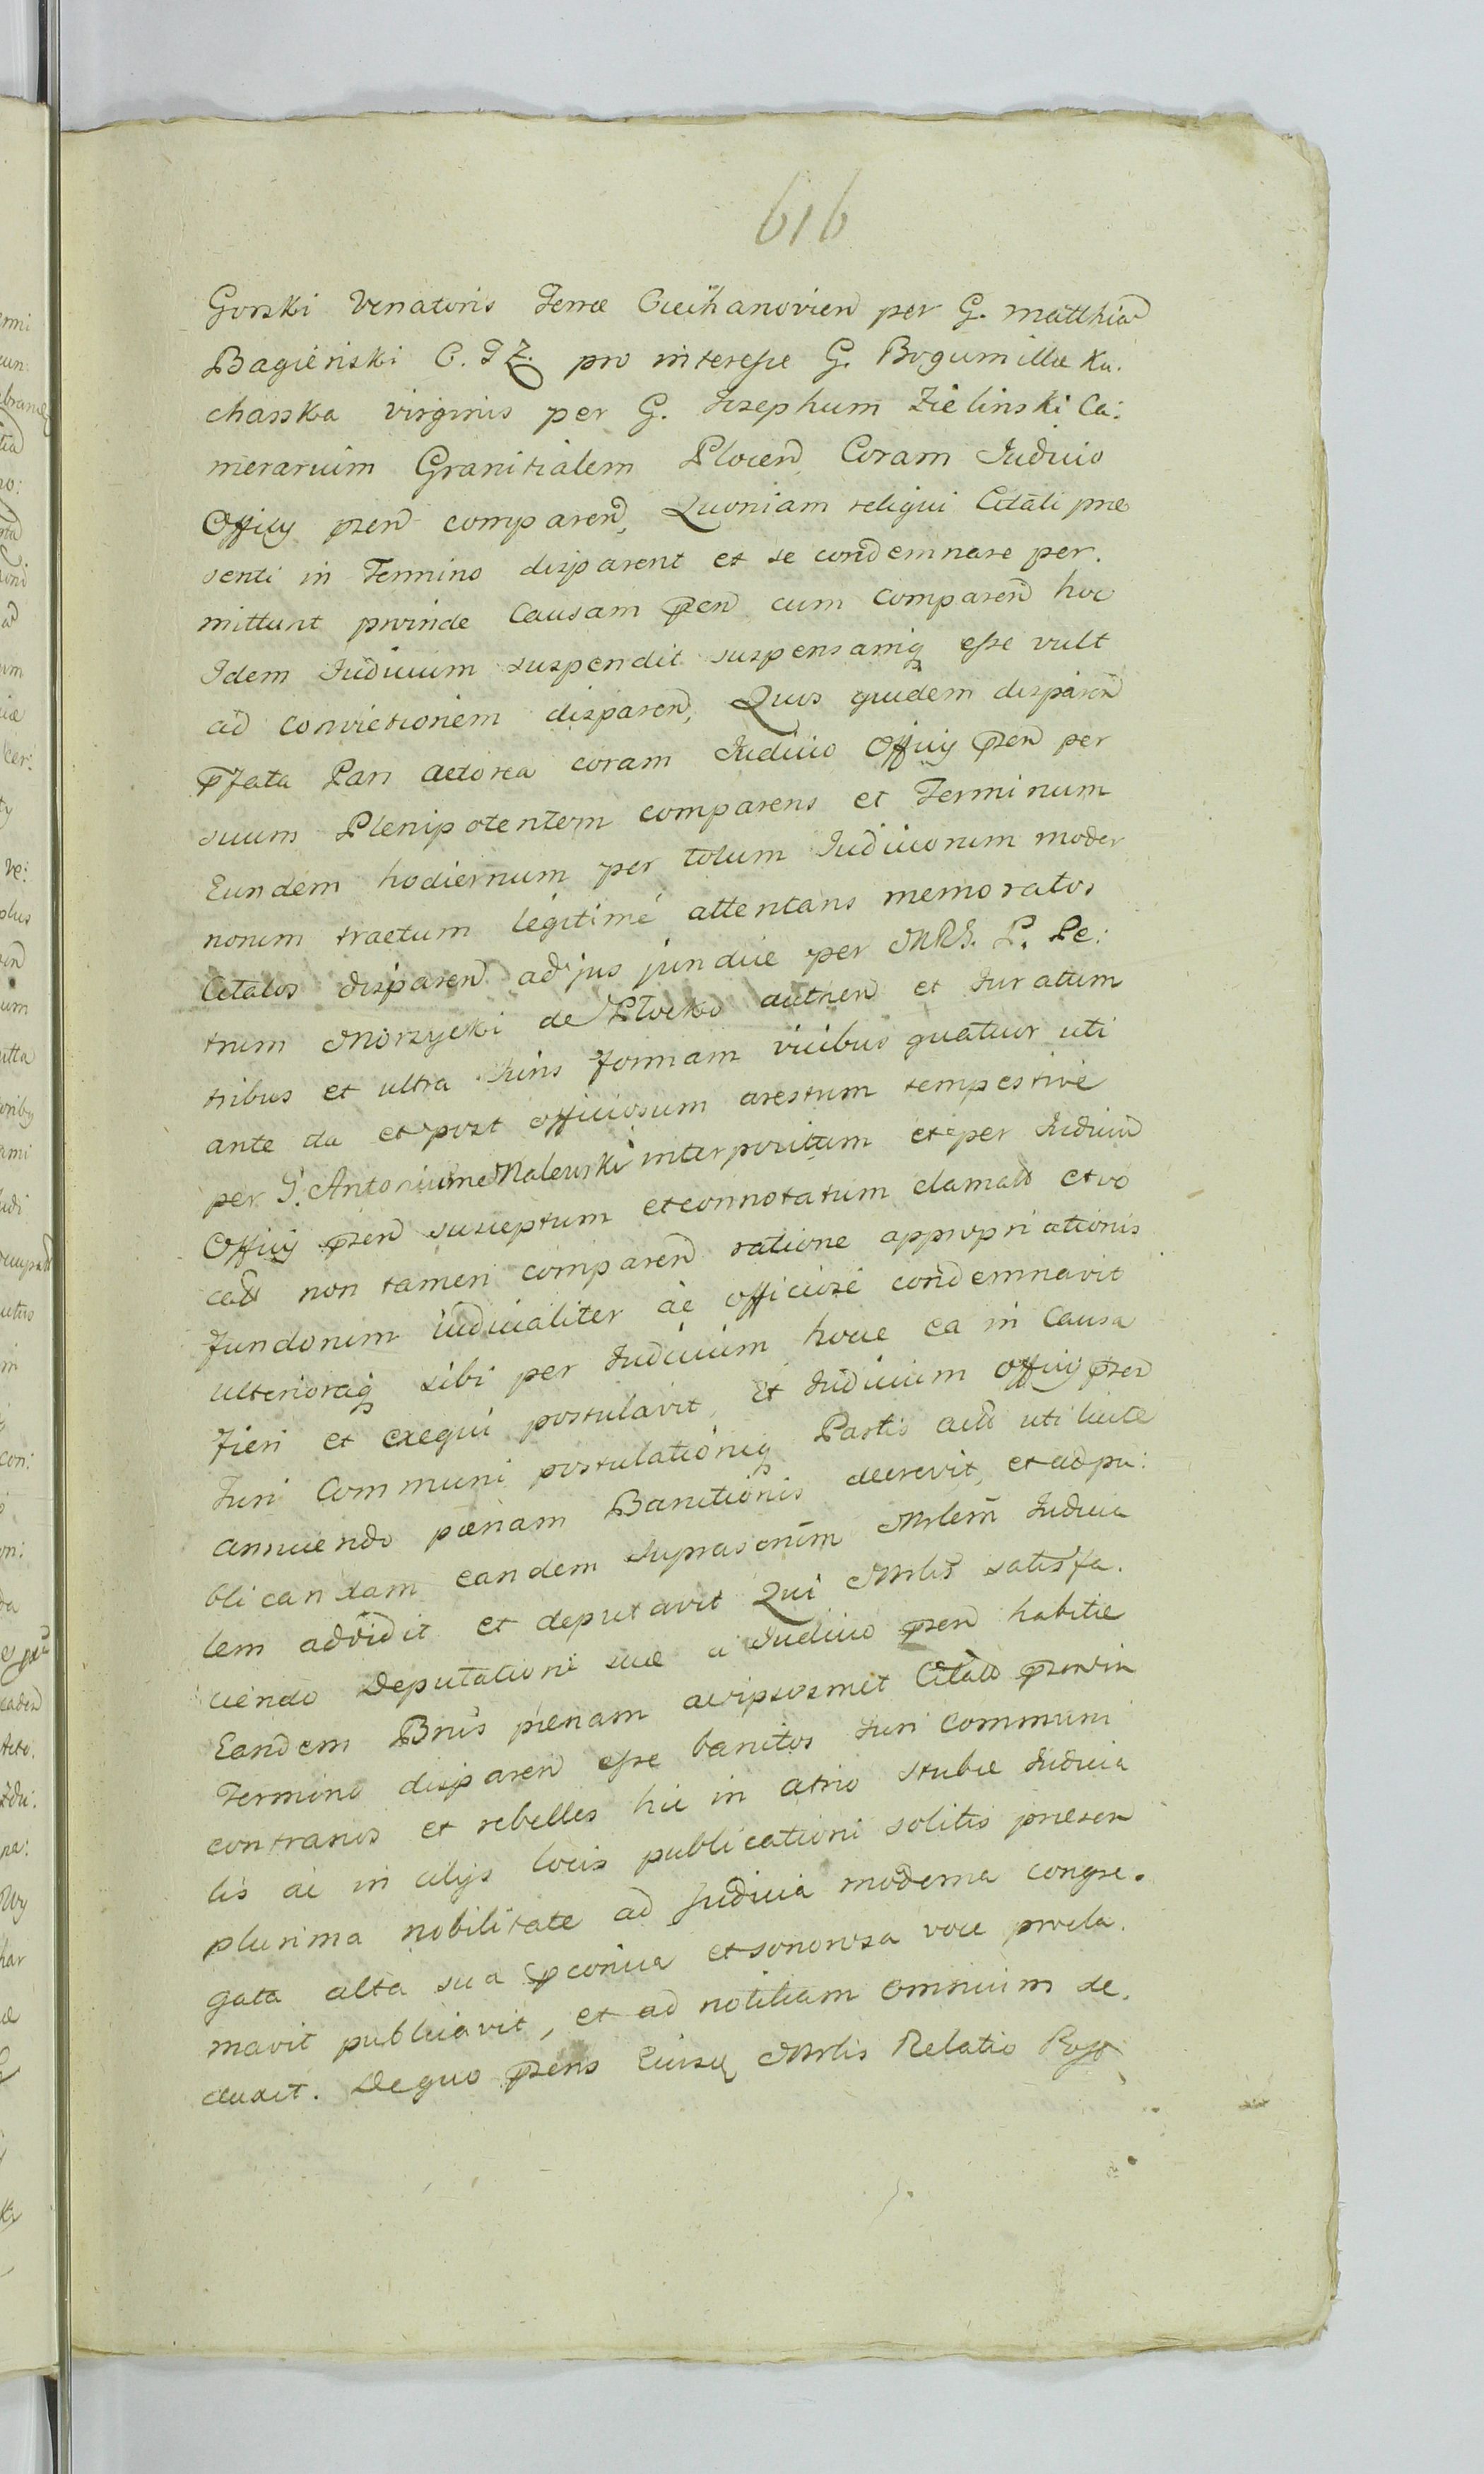 616
Gorski Venatoris Terræ Ciechanovien per G. Matthia
Bagieński C. G Z. pro interesse G. Bogumillæ Ku.
charska virginis per G. Josephum Zielinski Ca:
merarium Granitialem Plocen Coram Judicio
Officij pzen comparen, Quoniam reliqui Citati præ
senti in Termino disparent et se condemnare per.
mittunt proinde Causam pzen cum comparen hoc
Idem Judicium suspendit suspensamq esse vult
ad convictionem disparen, Quos quidem disparen
pfata Pars Actorea coram Judicio Officij pzen per
suum Plenipotentem comparens et Terminum
Eundem hodiernum per totum Judiciorum moder
norum tractum legitimé attentans memoratos
Citatos disparen ad jus juridice per MRJ. P. Pe:
trum Morzycki de Plocko authen et Juratum
tribus et ultra Juris formam vicibus quatuor uti
ante da et post officiosum arestum tempestivé
per G. Antonium Malewski interpositum et per Judiciu
Officij pzen susceptum et connotatum clamatt et vo
catt non tamen comparen ratione appropriationis
fundorum iudicialiter ac officiosé condemnavit
ulterioraq sibi per Judicium hocce ea in Causa
fieri et exequi postulavit, Et Judicium Officij pzen
Juri Communi postulationiq Partis actt uti licitæ
annuendo pœnam Banitionis decrevit, et ad pu:
blicandam eandem suprascriptum Mrlem Judicia
lem addidit et deputavit Qui Mrlis satisfa.
ciendo Deputationi suæ a Judicio pzen habitæ
Eandem Bnis pœnam ac ipsosmet Citatt pzenti in
Termino disparen esse banitos Juri Communi
contrarios et rebelles hic in atrio stubæ Judicia
lis ac in alijs locis publicationi solitis præsen
plurima nobilitate ad Judicia moderna congre.
gata alta sua pconica et sonorosa voce procla.
mavit publicavit, et ad notitiam omnium de.
duxit. De quo pzens Eiusq Mrlis Relatio